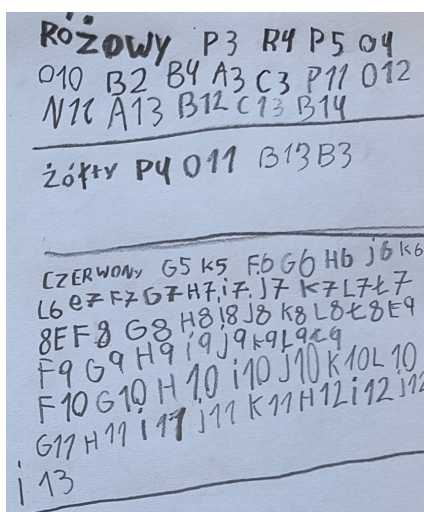 RÓŻOWY P3 R4 P5 O4
O10 B2 B4 A3 C3 P11 O12
N11 A13 B12 C13 B14
żółty P4 O11 B13 B3
CZERWONY G5 K5 F6 G6 H6 j6 K6
L6 e7 F7 G7 H7 i7 J7 K7 L7 Ł7
8E F8 G8 H8 i8 J8 K8 L8 Ł8 E9
F9 G9 H9 i9 J9 K9 L9 Ł9
F10 G10 H10 i10 J10 K10 L10
G11 H11 i11 j11 K11 H12 i12 j12
i 13